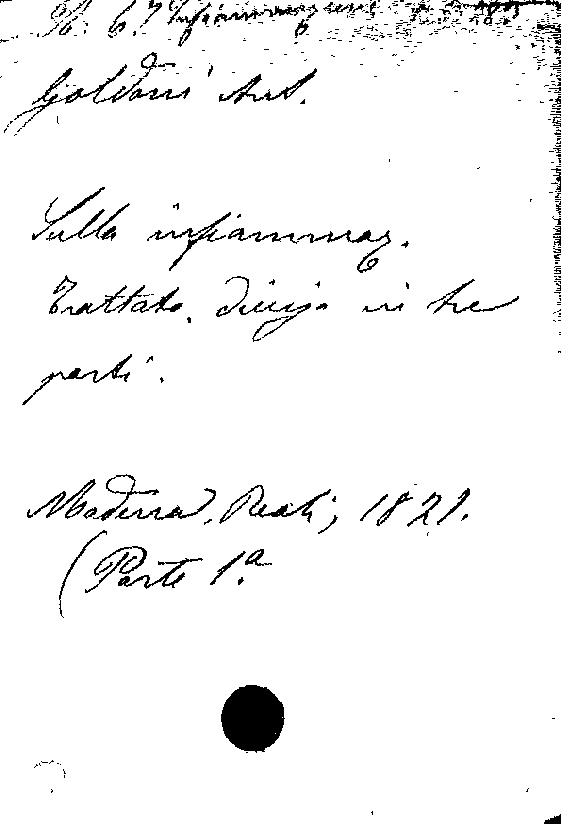 R. 6.7 Infiammazione
Goldoni Ant.
Sulla infiammaz.
Trattato diviso in tre
parti.
Modena, Reali, 1821.
(Parte 1.a